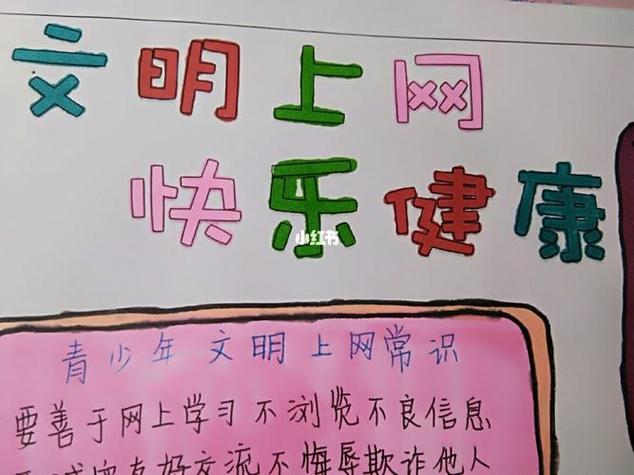 文明上网
快乐健康
小红书
青少年文明上网常识
要善于网上学习不浏览不良信息
友好交流不悔辱欺诈他人